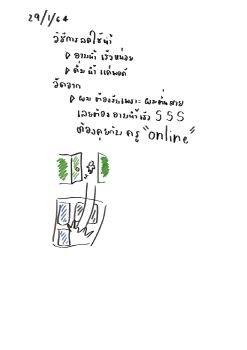 29/1/64
วิธีการลดใช้น้ำ
▷ อาบน้ำ เร็วหน่อย
▷ ดื่มน้ำ แค่พอดี
วัดจาก
▷ ผม ต้องรีบเพราะ ผมตื่นสาย
เลยต้อง อาบน้ำเร็ว SSS
ต้องคุยกับ ครู "online"